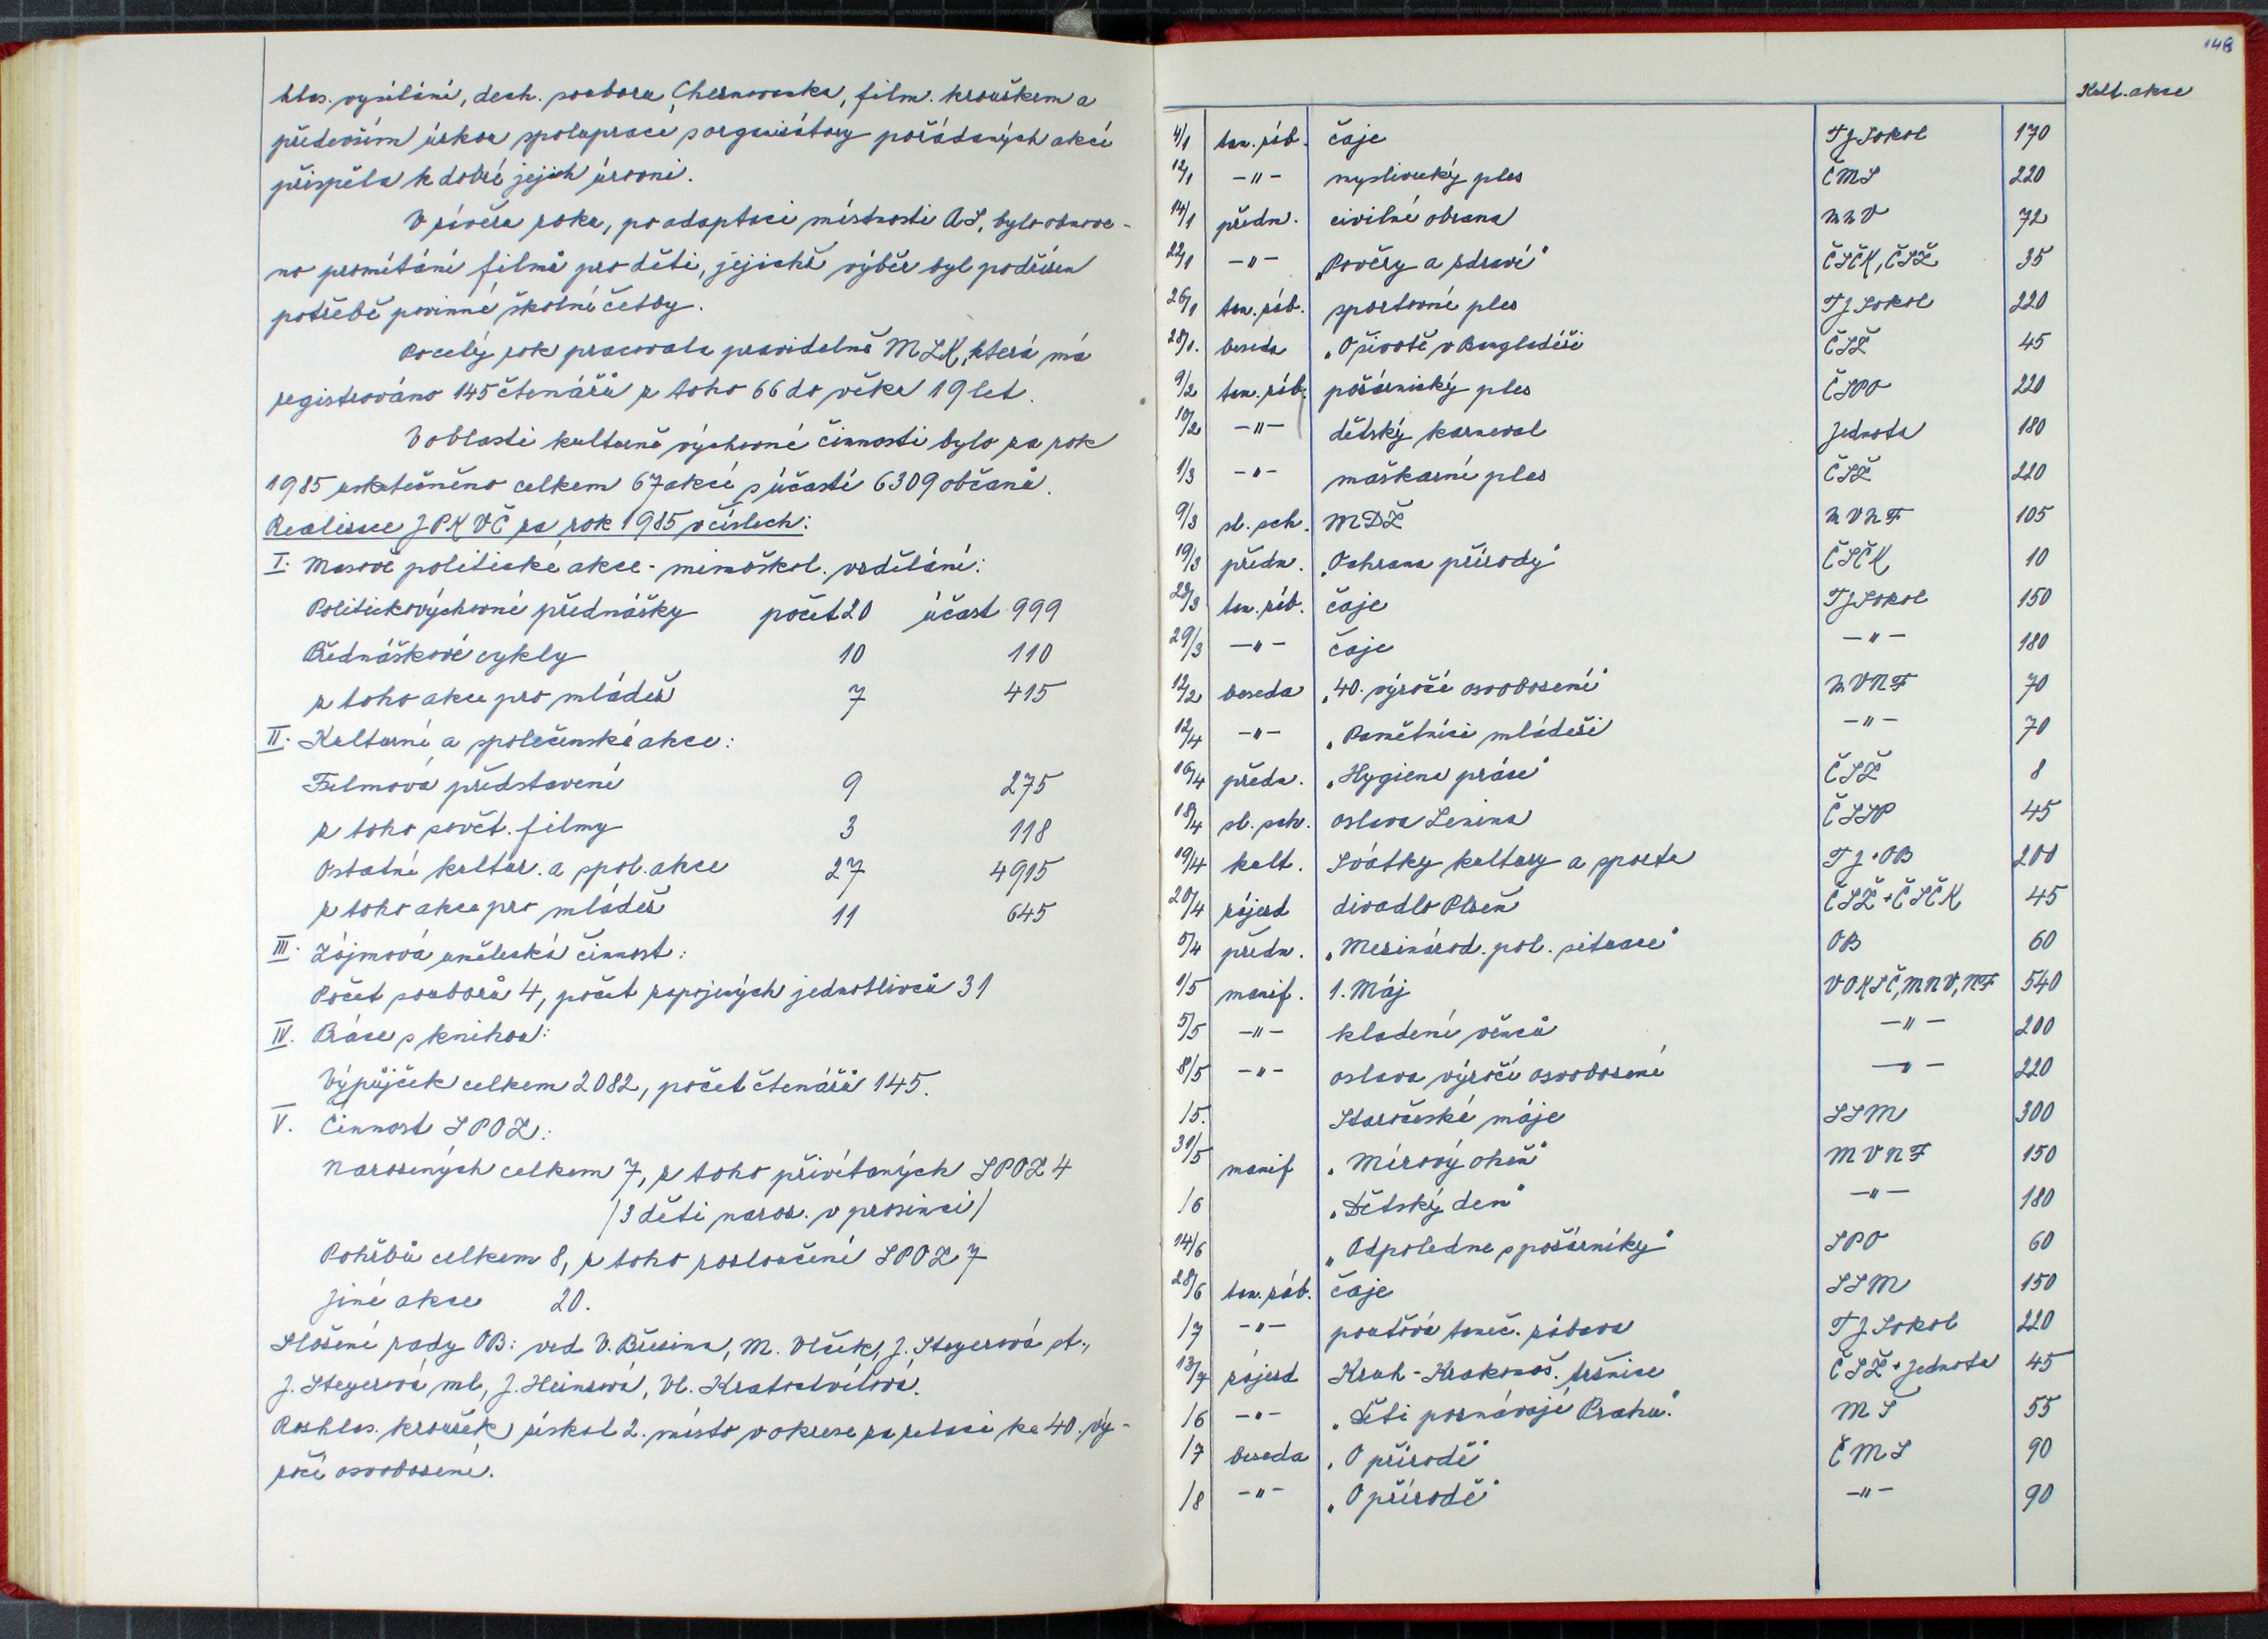 hlas. vysílání, dech. souboru Chernovanka, film. kroužkem a
především úzkou spoluprací s organisátory pořádaných akcí
přispěla k dobré jejich úrovni.
V závěru roku, po adaptaci místnosti AS, bylo obnove-
no promítání filmů pro děti, jejichž výběr byl podřízen
potřebě povinné školní četby.
Po celý rok pracovala pravidelně MLK, která má
registrováno 145 čtenářů z toho 66 do věku 19 let.
V oblasti kulturně výchovné činnosti bylo za rok
1985 uskutečněno celkem 67 akcí s účastí 6309 občanů.
Realisace JPKVČ za rok 1985 v číslech:
I. Masově politické akce - mimoškol. vzdělání:
Politickovýchovné přednášky počet 20 účast 999
Přednáškové cykly 10 110
z toho akce pro mládež 7 415
II. Kulturní a společenské akce:
Filmová představení 9 275
z toho sovět. filmy 3 118
Ostatní kultur. a spol. akce 27 4915
z toho akce pro mládež 11 645
III. Zájmová umělecká činnost:
Počet souborů 4, počet zapojených jednotlivců 31
IV. Práce s knihou:
Výpůjček celkem 2082, počet čtenářů 145.
V. Činnost SPOZ:
Narozených celkem 7, z toho přivítaných SPOZ 4
/3 děti naroz. v prosinci/
Pohřbů celkem 8, z toho rozloučení SPOZ 7
jiné akce 20.
Složení rady OB: ved V. Březina, M. Vlček, J. Steyerová st.,
J. Steyerová ml, J. Heinzová, Vl. Kratochvílová.
Rozhlas. kroužek získal 2. místo v okrese za relaci ke 40. vý-
ročí osvobození.
148
Kult. akce
4/1 tan. záb. čaje TJ Sokol 170
12/1 -"- myslivecký ples ČMS 220
14/1 předn. civilní obrana MNV 72
22/1 -"- „Pověry a zdraví" ČSČK, ČSŽ 35
26/1 tan. záb. sportovní ples TJ Sokol 220
28/1. beseda „O životě v Bangladéši ČSŽ 45
9/2 tan. záb. požárnický ples ČSPO 220
10/2 -"- dětský karneval Jednota 180
1/3 -"- maškarní ples ČSŽ 220
9/3 sl. sch. MDŽ MVNF 105
19/3 předn. „Ochrana přírody" ČSČK 10
23/3 tan. záb. čaje TJ Sokol 150
29/3 -"- čaje -"- 180
12/2 beseda „40. výročí osvobození" MVNF 70
12/4 -"- „Pamětníci mládeži -"- 70
16/4 předn. „Hygiena práce" ČSŽ 8
18/4 sl. sch. oslava Lenina ČSSP 45
19/4 kult. Svátky kultury a sportu TJ + OB 200
20/4 zájezd divadlo Plzeň ČSŽ + ČSČK 45
5/4 předn. „Mezinárod. pol. situace" OB 60
1/5 manif. 1. Máj VOKSČ, MNV, NF 540
5/5 -"- kladení věnců -"- 200
8/5 -"- oslava výročí osvobození -"- 220
/5. Staročeské máje SSM 300
31/5 manif „Mírový oheň" MVNF 150
/6 „Dětský den" -"- 180
14/6 „Odpoledne s požárníky" SPO 60
28/6 tan. záb. čaje SSM 150
/7 -"- pouťová taneč. zábava TJ Sokol 220
13/7 zájezd Kruh - Krakonoš. tržnice ČSŽ + Jednota 45
/6 -"- „Děti poznávají Prahu." MŠ 55
/7 beseda „O přírodě" ČMS 90
/8 -"- „O přírodě" -"- 90